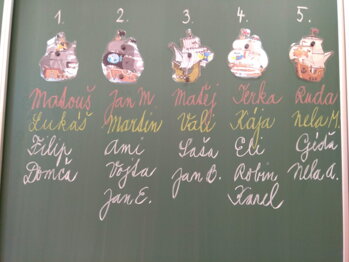 1. 2. 3. 4. 5.
Matouš Jan M. Matěj Terka Ruda
Lukáš Martin Vali Kája Nela M.
Filip Ami Saša Eli
Domča Vojta Jan B. Robin Nela A.
Jan E. Karel